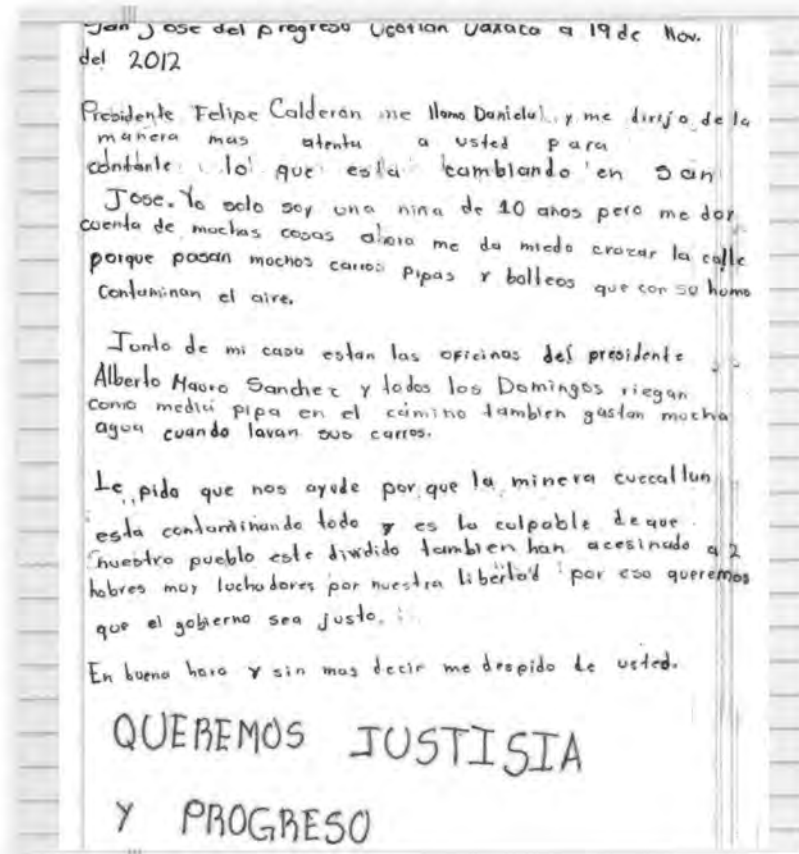 San Jose del progreso Ocotlan Oaxaca a 19 de Nov.
del 2012
Presidente Felipe Calderon me llamo Daniela, y me dirijo de la
manera mas atenta a usted para
contarle lo que esta cambiando en San
Jose. Yo solo soy una nina de 10 anos pero me doy
cuenta de muchas cosas ahora me da miedo cruzar la calle
porque pasan muchos carros pipas y bolteos que con su humo
contaminan el aire.
Junto de mi casa estan las oficinas del presidente
Alberto Mauro Sanchez y todos los Domingos riegan
como media pipa en el camino tambien gastan mucha
agua cuando lavan sus carros.
Le pido que nos ayude por que la minera cuzcatlun
esta contaminando todo y es la culpable de que
nuestro pueblo este dividido tambien han acesinado a 2
hobres muy luchadores por nuestra libertad por eso queremos
que el gobierno sea justo.
En buena hora y sin mas decir me despido de usted.
QUEREMOS JUSTISIA
Y PROGRESO